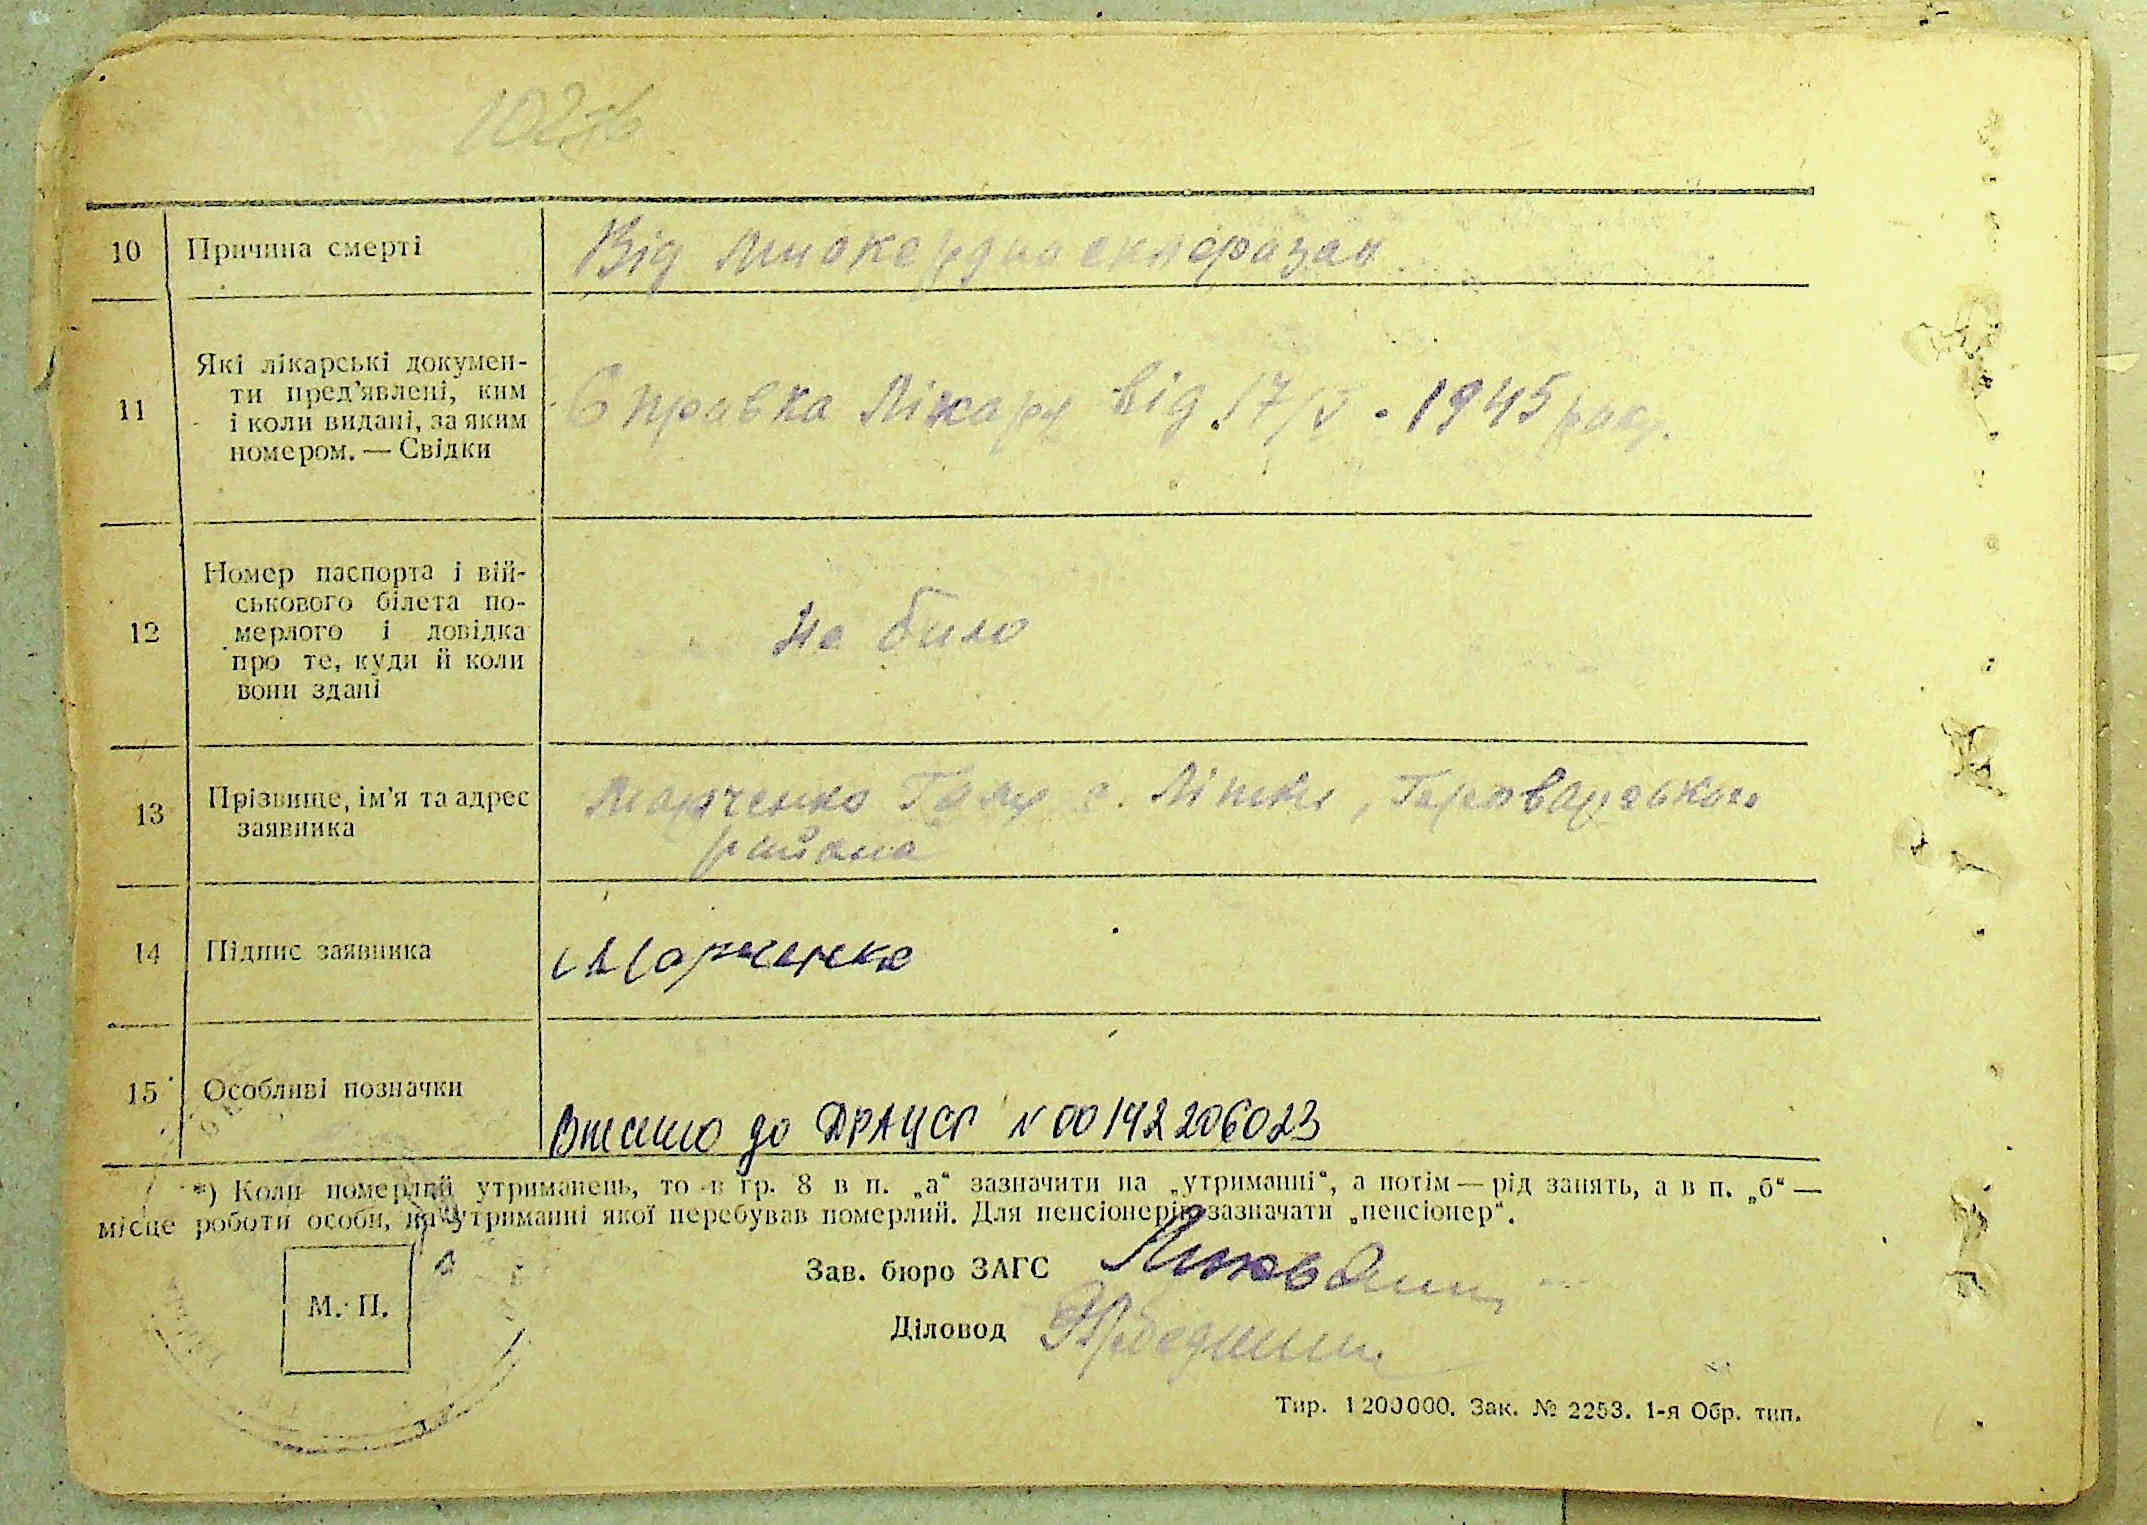 102зв
10 Причина смерті Від миокардиосклероза
11 Які лікарські докумен-
ти пред'явлені, ким
і коли видані, за яким
номером. — Свідки
Справка Лікару від 17/V - 1945 року.
12 Номер паспорта і вій-
ськового білета по-
мерлого і довідка
про те, куди й коли
вони здані
Не било
13 Прізвище, ім'я та адрес
заявника
Марченко с. Літки, Броварського
района
14 Підпис заявника Марченко
15 Особливі позначки
Внесено до ДРАЦСГ N 00142206023
*) Коли померлий утриманець, то в гр. 8 в п. „а“ зазначити на „утриманні“, а потім — рід занять, а в п. „б“ —
місце роботи особи, на утриманні якої перебував померлий. Для пенсіонерів зазначати „пенсіонер“.
Зав. бюро ЗАГС
М. П.
Діловод
Тир. 1200000. Зак. № 2253. 1-я Обр. тип.